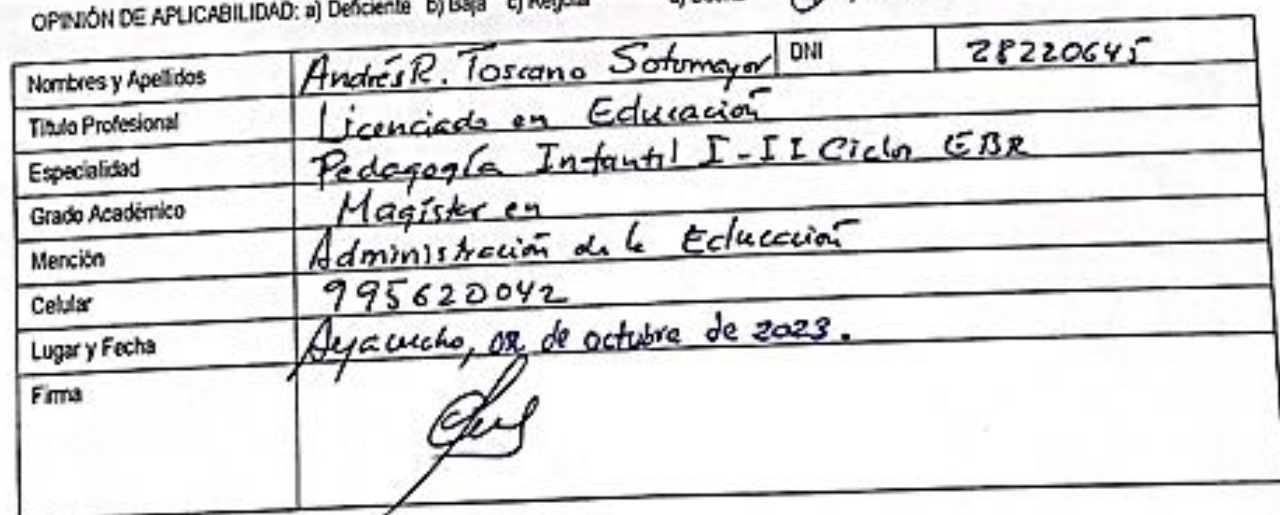 OPINIÓN DE APLICABILIDAD: a) Deficiente b) Baja c) Regular
Nombres y Apellidos Andrés R. Toscano Sotomayor DNI 28220645
Título Profesional Licenciado en Educación
Especialidad Pedagogía Infantil I-II Ciclo EBR
Grado Académico Magíster en
Mención Administración de la Educación
Celular 995620042
Lugar y Fecha Ayacucho, 02 de octubre de 2023.
Firma